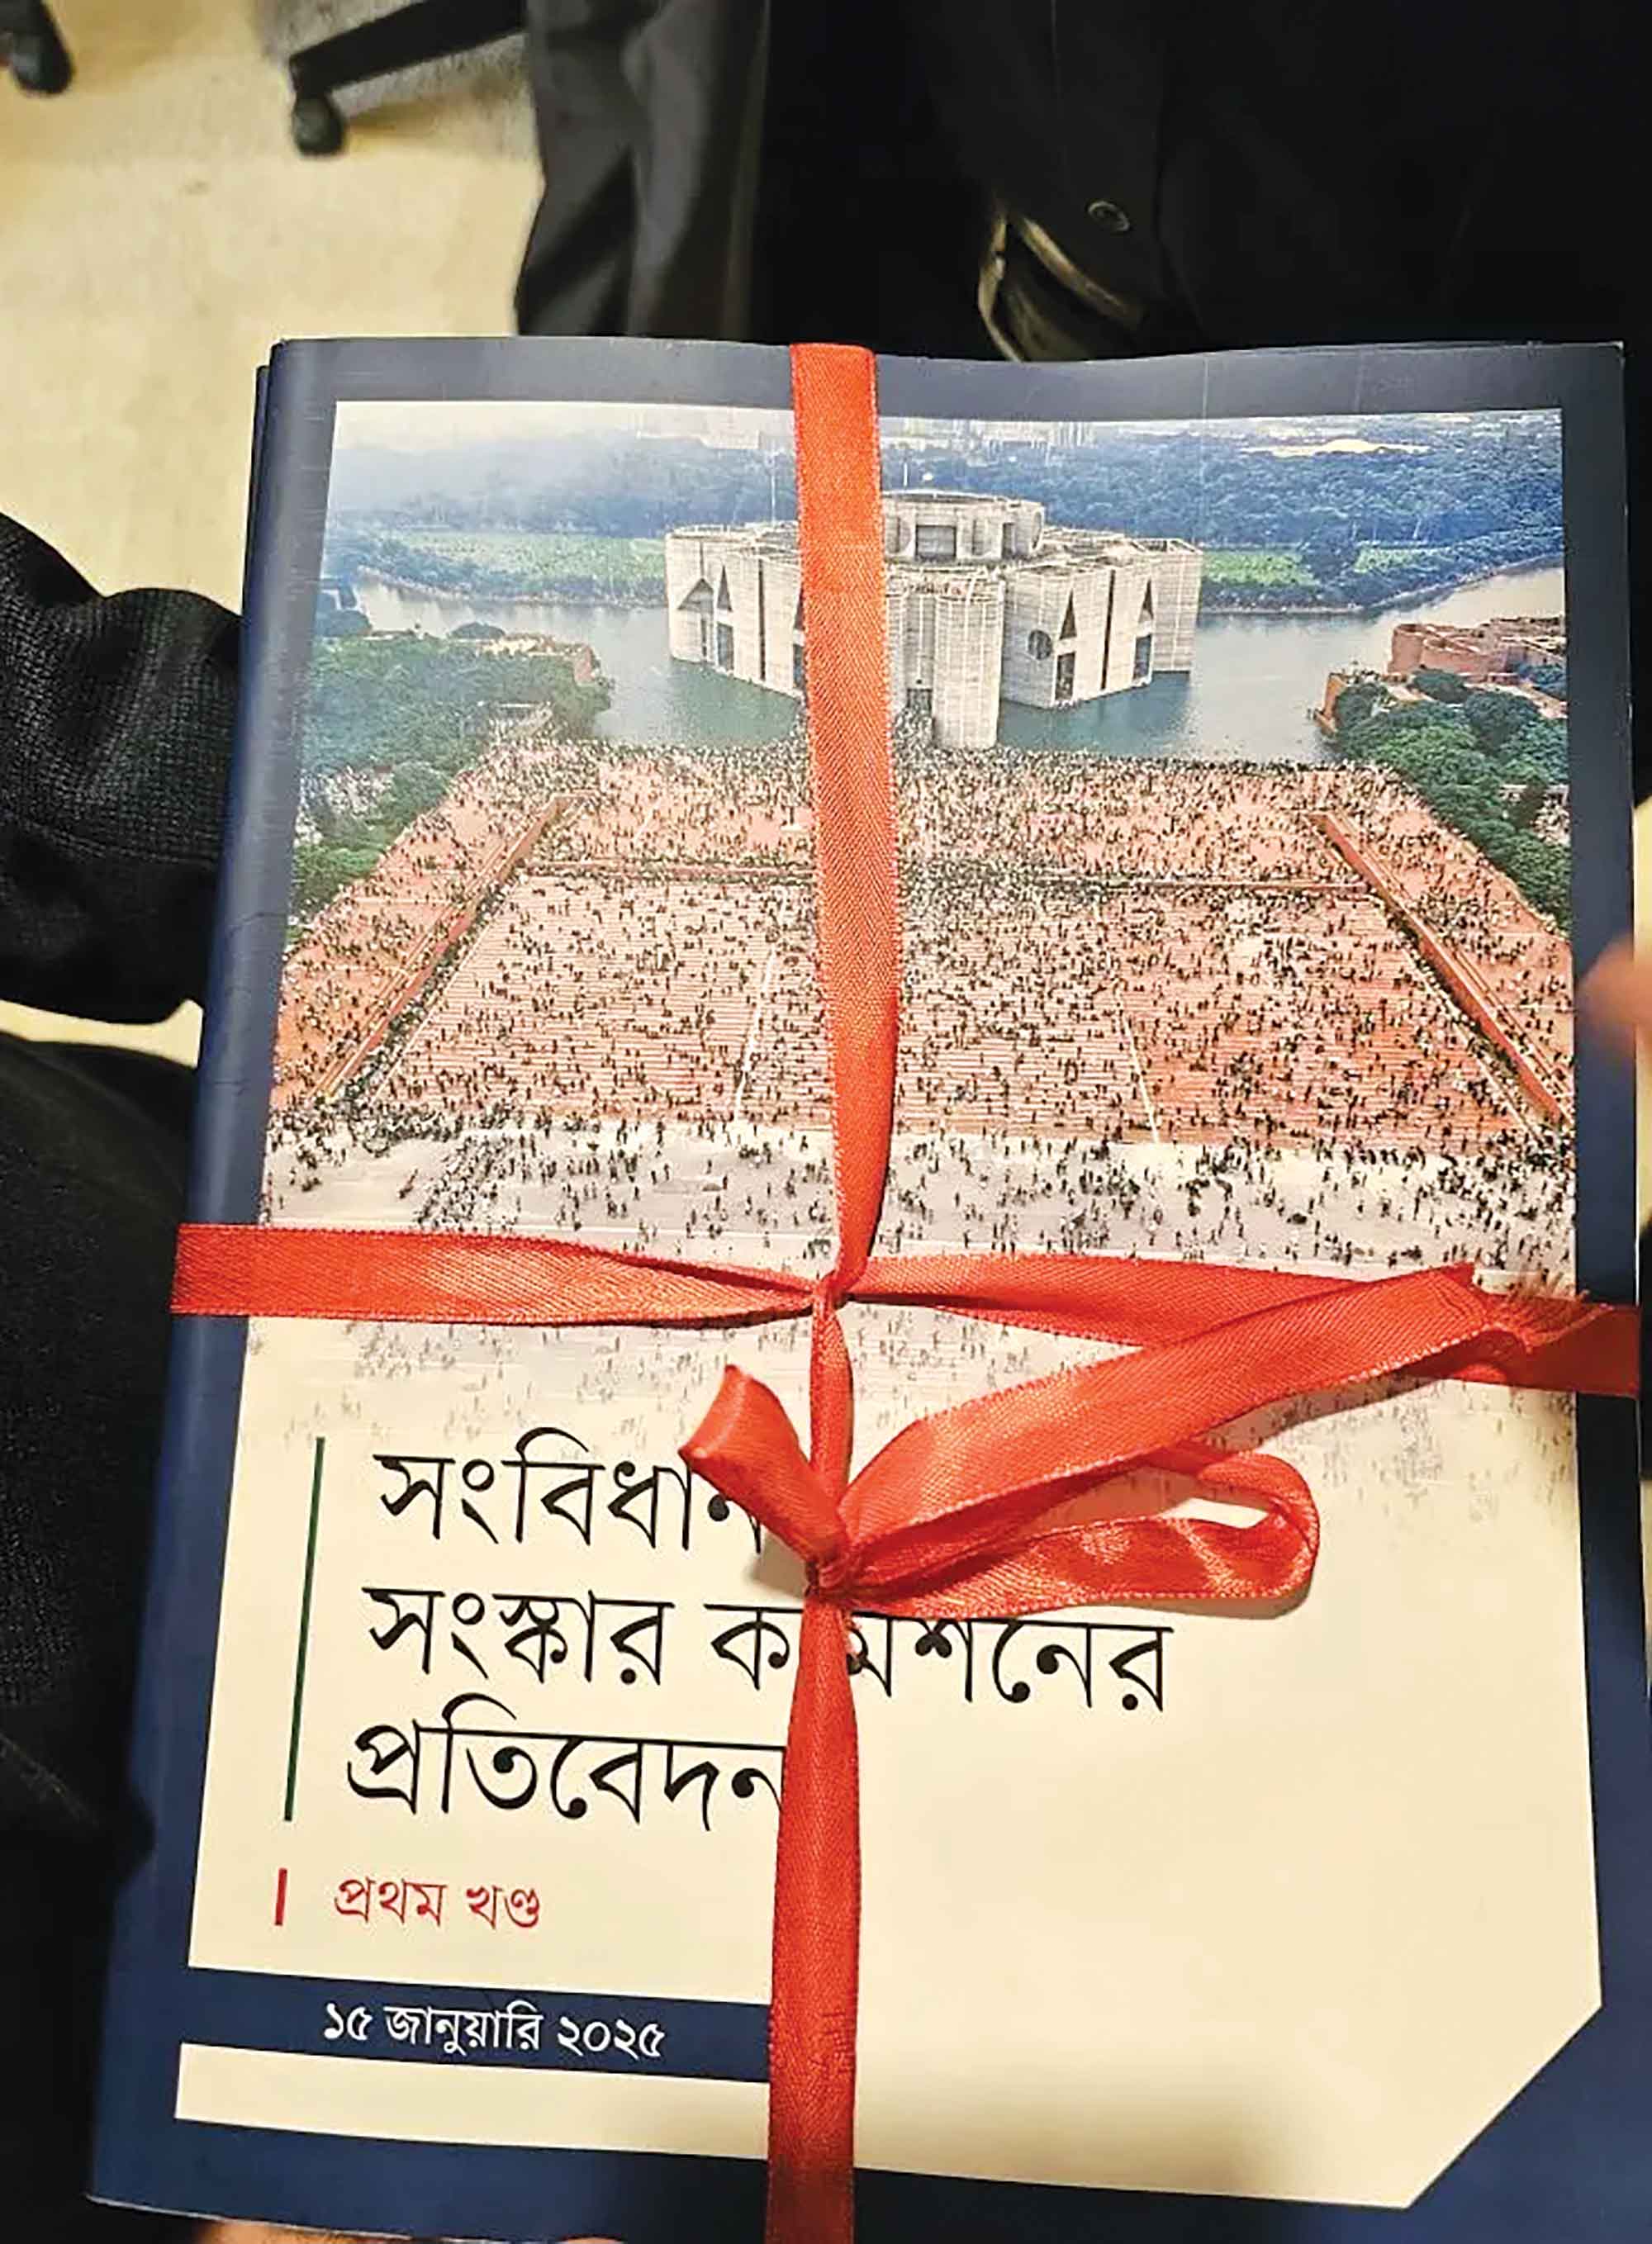 সংবিধান
সংস্কার কমিশনের
প্রতিবেদন
প্রথম খণ্ড
১৫ জানুয়ারি ২০২৫